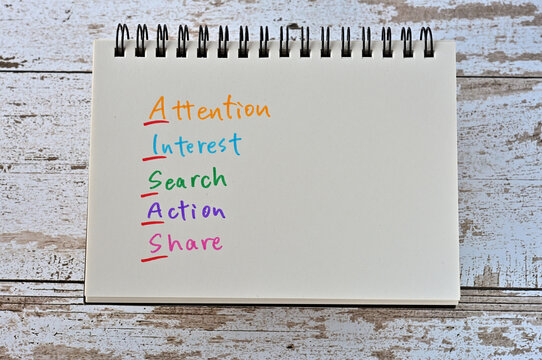 Attention
Interest
Search
Action
Share